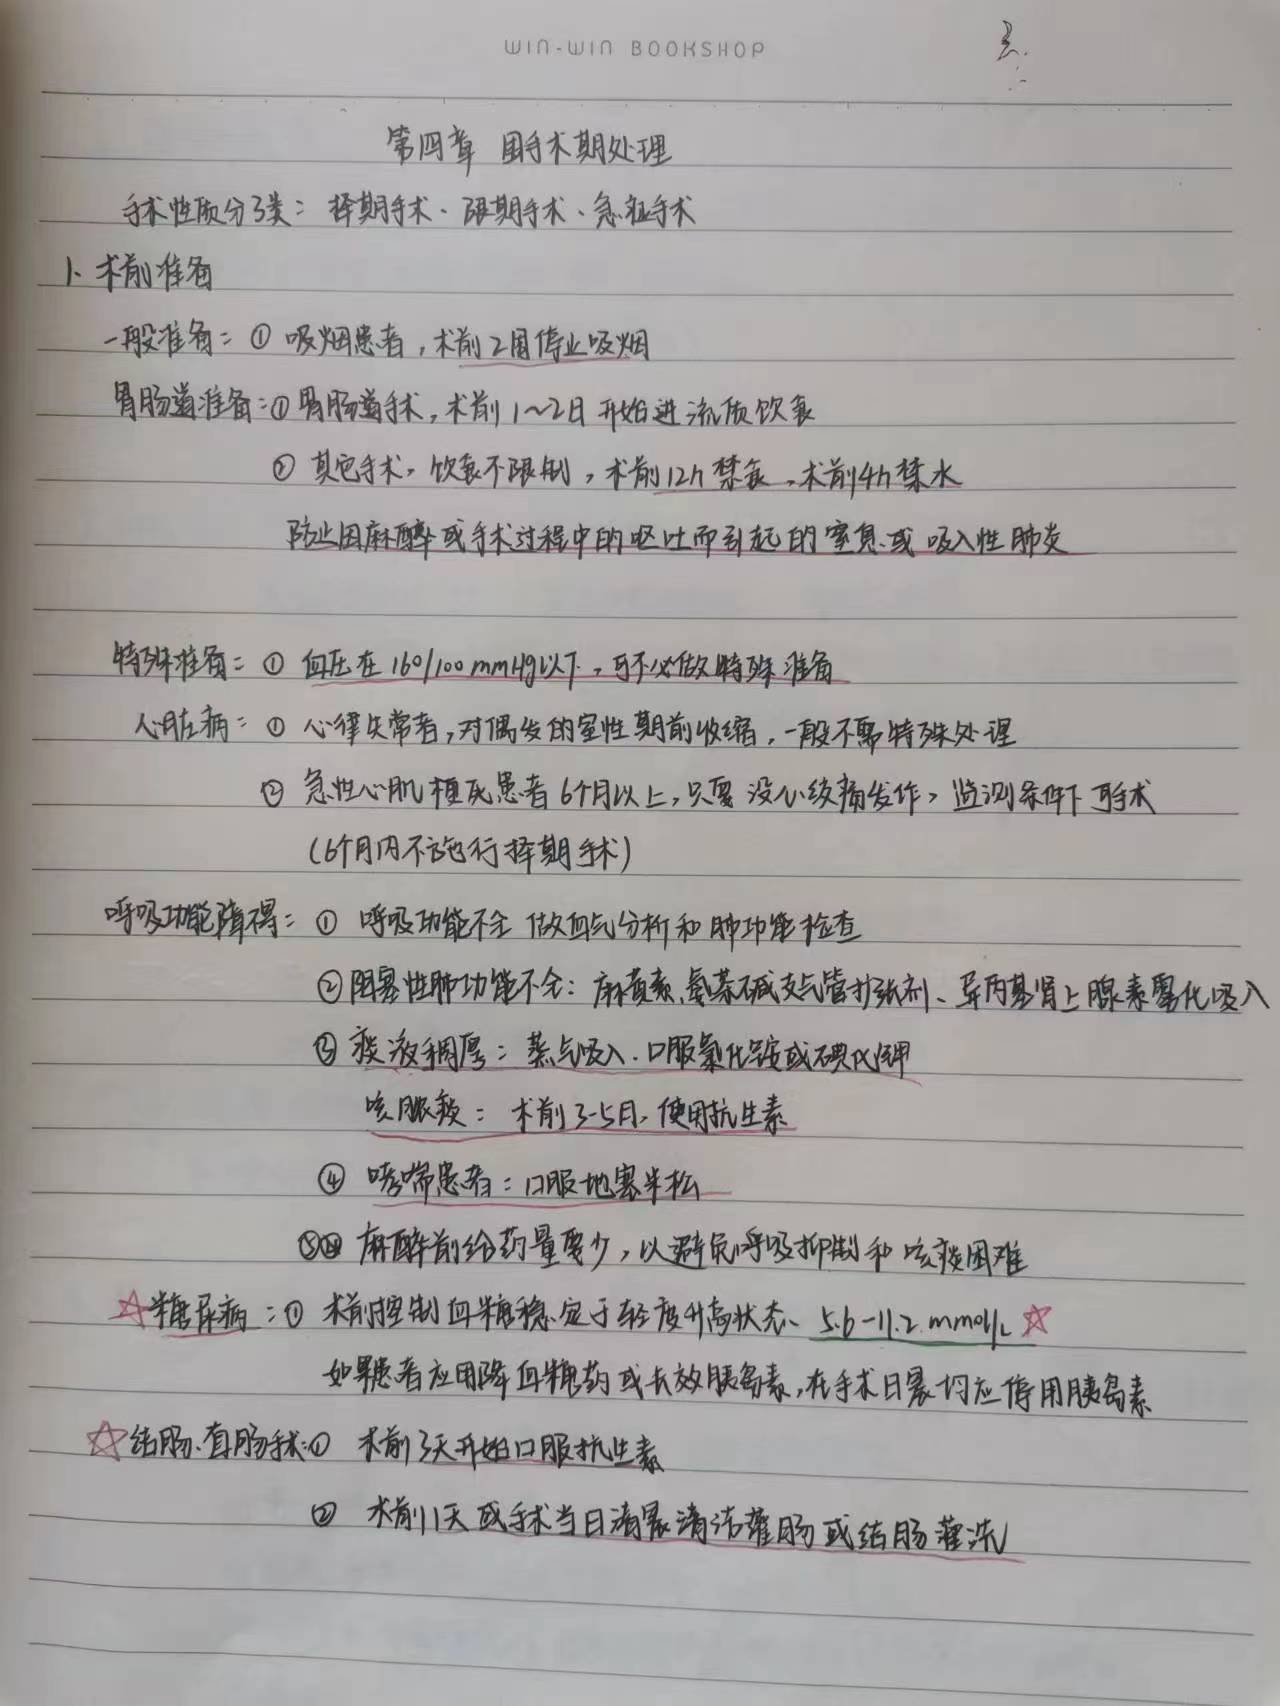 WIN-WIN BOOKSHOP
第四章 围手术期处理
手术性质分类：择期手术、限期手术、急症手术
1、术前准备
一般准备：① 吸烟患者，术前2周停止吸烟
胃肠道准备：① 胃肠道手术，术前1～2日开始进流质饮食
② 其它手术，饮食不限制，术前12h禁食，术前4h禁水
防止因麻醉或手术过程中的呕吐而引起的窒息或吸入性肺炎
特殊准备：① 血压在160/100mmHg以下，可不必做特殊准备
心脏病：① 心律失常者，对偶发的室性期前收缩，一般不需特殊处理
② 急性心肌梗死患者6个月以上，只要没心绞痛发作，监测条件下可手术
（6个月内不施行择期手术）
呼吸功能障碍：① 呼吸功能不全 做血气分析和肺功能检查
② 阻塞性肺功能不全：麻黄素、氨茶碱支气管扩张剂、异丙基肾上腺素雾化吸入
③ 痰液稠厚：蒸气吸入、口服氯化铵或碘化钾
咳脓痰：术前3-5日、使用抗生素
④ 哮喘患者：口服地塞米松
⑤ 麻醉前给药量要少，以避免呼吸抑制和咳痰困难
☆糖尿病：① 术前控制血糖稳定于轻度升高状态、5.6-11.2mmol/L☆
如果患者应用降血糖药或长效胰岛素，在手术日晨均应停用胰岛素
☆结肠、直肠手术：① 术前3天开始口服抗生素
② 术前1天或手术当日清晨清洁灌肠或结肠灌洗